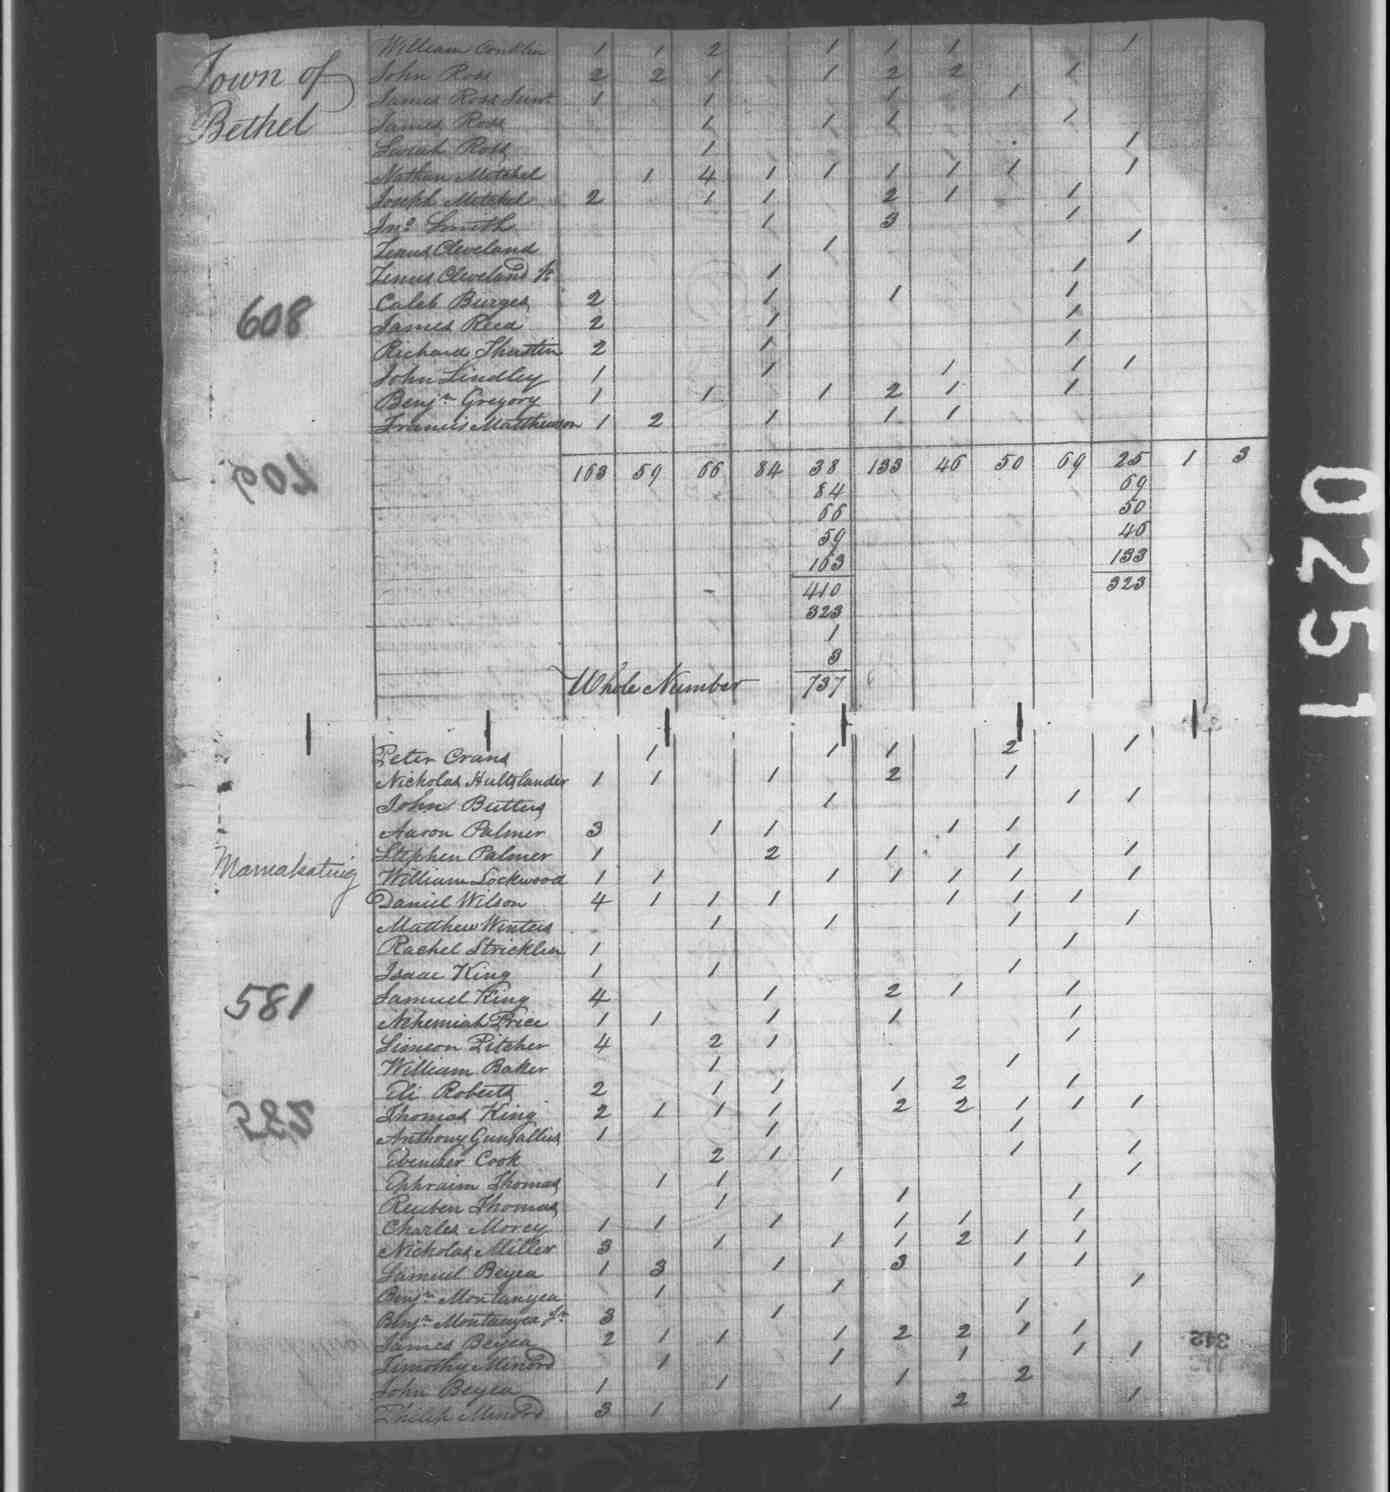 Town of
Bethel
William Conklin 1 1 2 1 1 1 1
John Ross 2 2 1 1 2 2 1
James Ross Junr 1 1 1 1
James Ross 1 1 1 1
Sarah Ross 1 1
Nathan Mitchel 1 4 1 1 1 1 1 1
Joseph Mitchel 2 1 1 2 1 1
Jno. Smith 1 3 1
Zenus Cleveland 1 1
Zenus Cleveland Jr 1 1
Caleb Burges 2 1 1 1
608
James Reed 2 1 1
Richard Thusten 2 1 1
John Lindley 1 1 1 1 1
Benjn Gregory 1 1 1 2 1 1
Francis Matthewson 1 2 1 1 1
609
163 59 66 84 38 133 46 50 69 25 1 3
84 69
66 50
59 46
163 133
410 323
323
1
3
Whole Number 737
Peter Crans 1 1 1 2 1
Nicholas Hultslander 1 1 1 2 1
John Butters 1 1 1
Aaron Palmer 3 1 1 1 1
Mamakating
Stephen Palmer 1 2 1 1 1
William Lockwood 1 1 1 1 1 1 1
Daniel Wilson 4 1 1 1 1 1 1
Matthew Winters 1 1 1 1
Rachel Stricklin 1 1
Isaac King 1 1 1
581
Samuel King 4 1 2 1 1
Nehemiah Price 1 1 1 1 1
Simeon Pitcher 4 2 1 1
William Baker 1 1
Eli Roberts 2 1 1 1 2 1
Thomas King 2 1 1 1 2 2 1 1 1
Anthony Gunsallus 1 1 1
Ebenezer Cook 2 1 1 1
Ephraim Thomas 1 1 1 1
Reuben Thomas 1 1 1
Charles Morey 1 1 1 1 1 1
Nicholas Miller 3 1 1 1 2 1 1
Samuel Beyea 1 3 1 3 1 1
Benjn Montanyea 1 1 1
Benjn Montanyea Jr 3 1 1
James Beyea 2 1 1 1 2 2 1 1
342
Timothy Minord 1 1 1 1 1
John Beyea 1 1 1 2
Philip Minord 3 1 1 2 1
0251